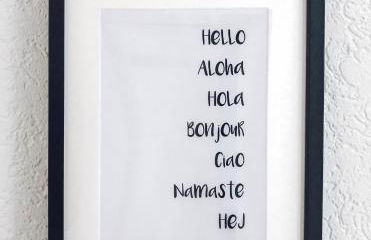 Hello
Aloha
Hola
Bonjour
Ciao
Namaste
Hej